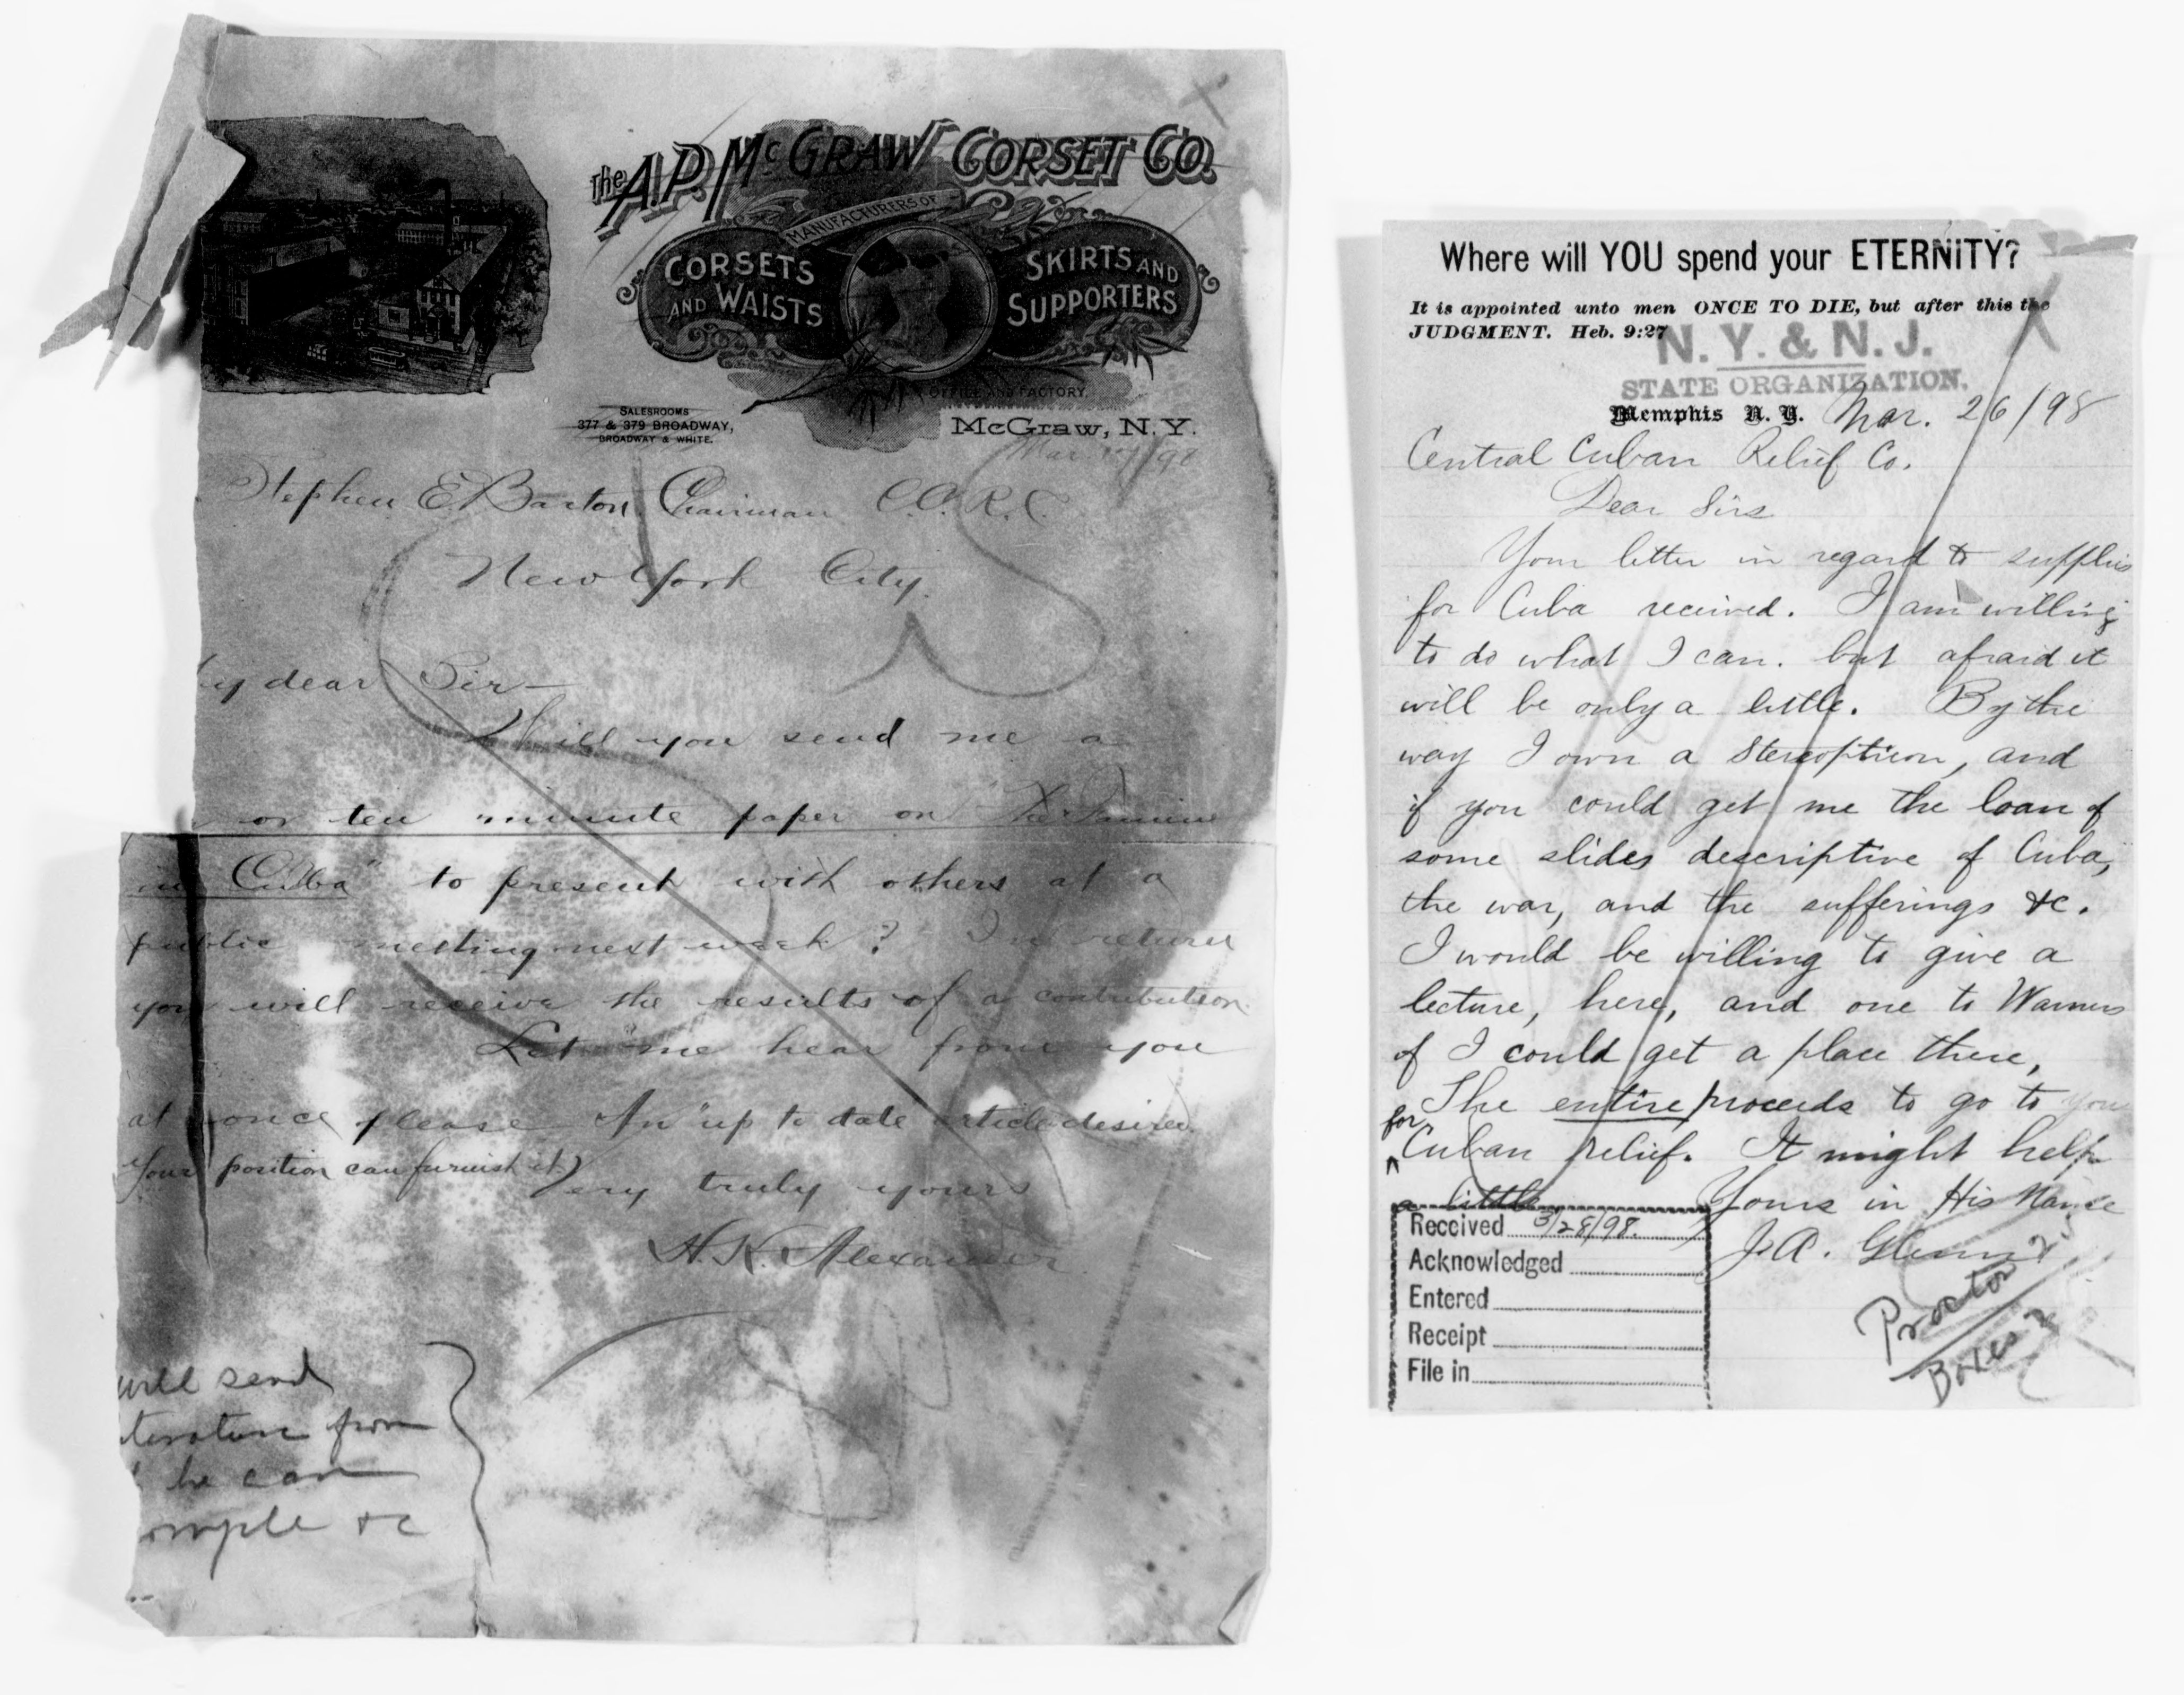 The A.P. McGRAW CORSET CO.
MANUFACTURERS OF
CORSETS
AND WAISTS
SKIRTS AND
SUPPORTERS
OFFICE AND FACTORY,
SALESROOMS
377 & 379 BROADWAY,
BROADWAY & WHITE.
McGRAW, N.Y.
Mar /98
Stephen E Barton Chairman C.C.R.C.
New York City.
y dear Sir—
Will you send me a
or ten minute paper on "The Famine
in Cuba" to present with others at a
public meeting next week? In return
you will receive the results of a contribution.
Let me hear from you
at once please An "up to date" article desired.
Your position can furnish it)
Very truly yours
H. K. Alexander
will send
terature from
he can
&c
Where will YOU spend your ETERNITY?
It is appointed unto men ONCE TO DIE, but after this the
JUDGMENT. Heb. 9:27
N. Y. & N. J.
STATE ORGANIZATION.
Memphis N. Y. Mar. 26/98
Central Cuban Relief Co.
Dear Sirs
Your letter in regard to supplies
for Cuba received. I am willing
to do what I can. but afraid it
will be only a little. By the
way I own a Stereopticon, and
if you could get me the loan of
some slides descriptive of Cuba,
the war, and the sufferings &c.
I would be willing to give a
lecture, here, and one to Warners
if I could get a place there,
The entire proceeds to go to you
for
Cuban relief. It might help
a little Yours in His Name
J. A. Glenn
Received 3/28/98.
Acknowledged
Entered
Receipt
File in
Proctor
Boxes 2